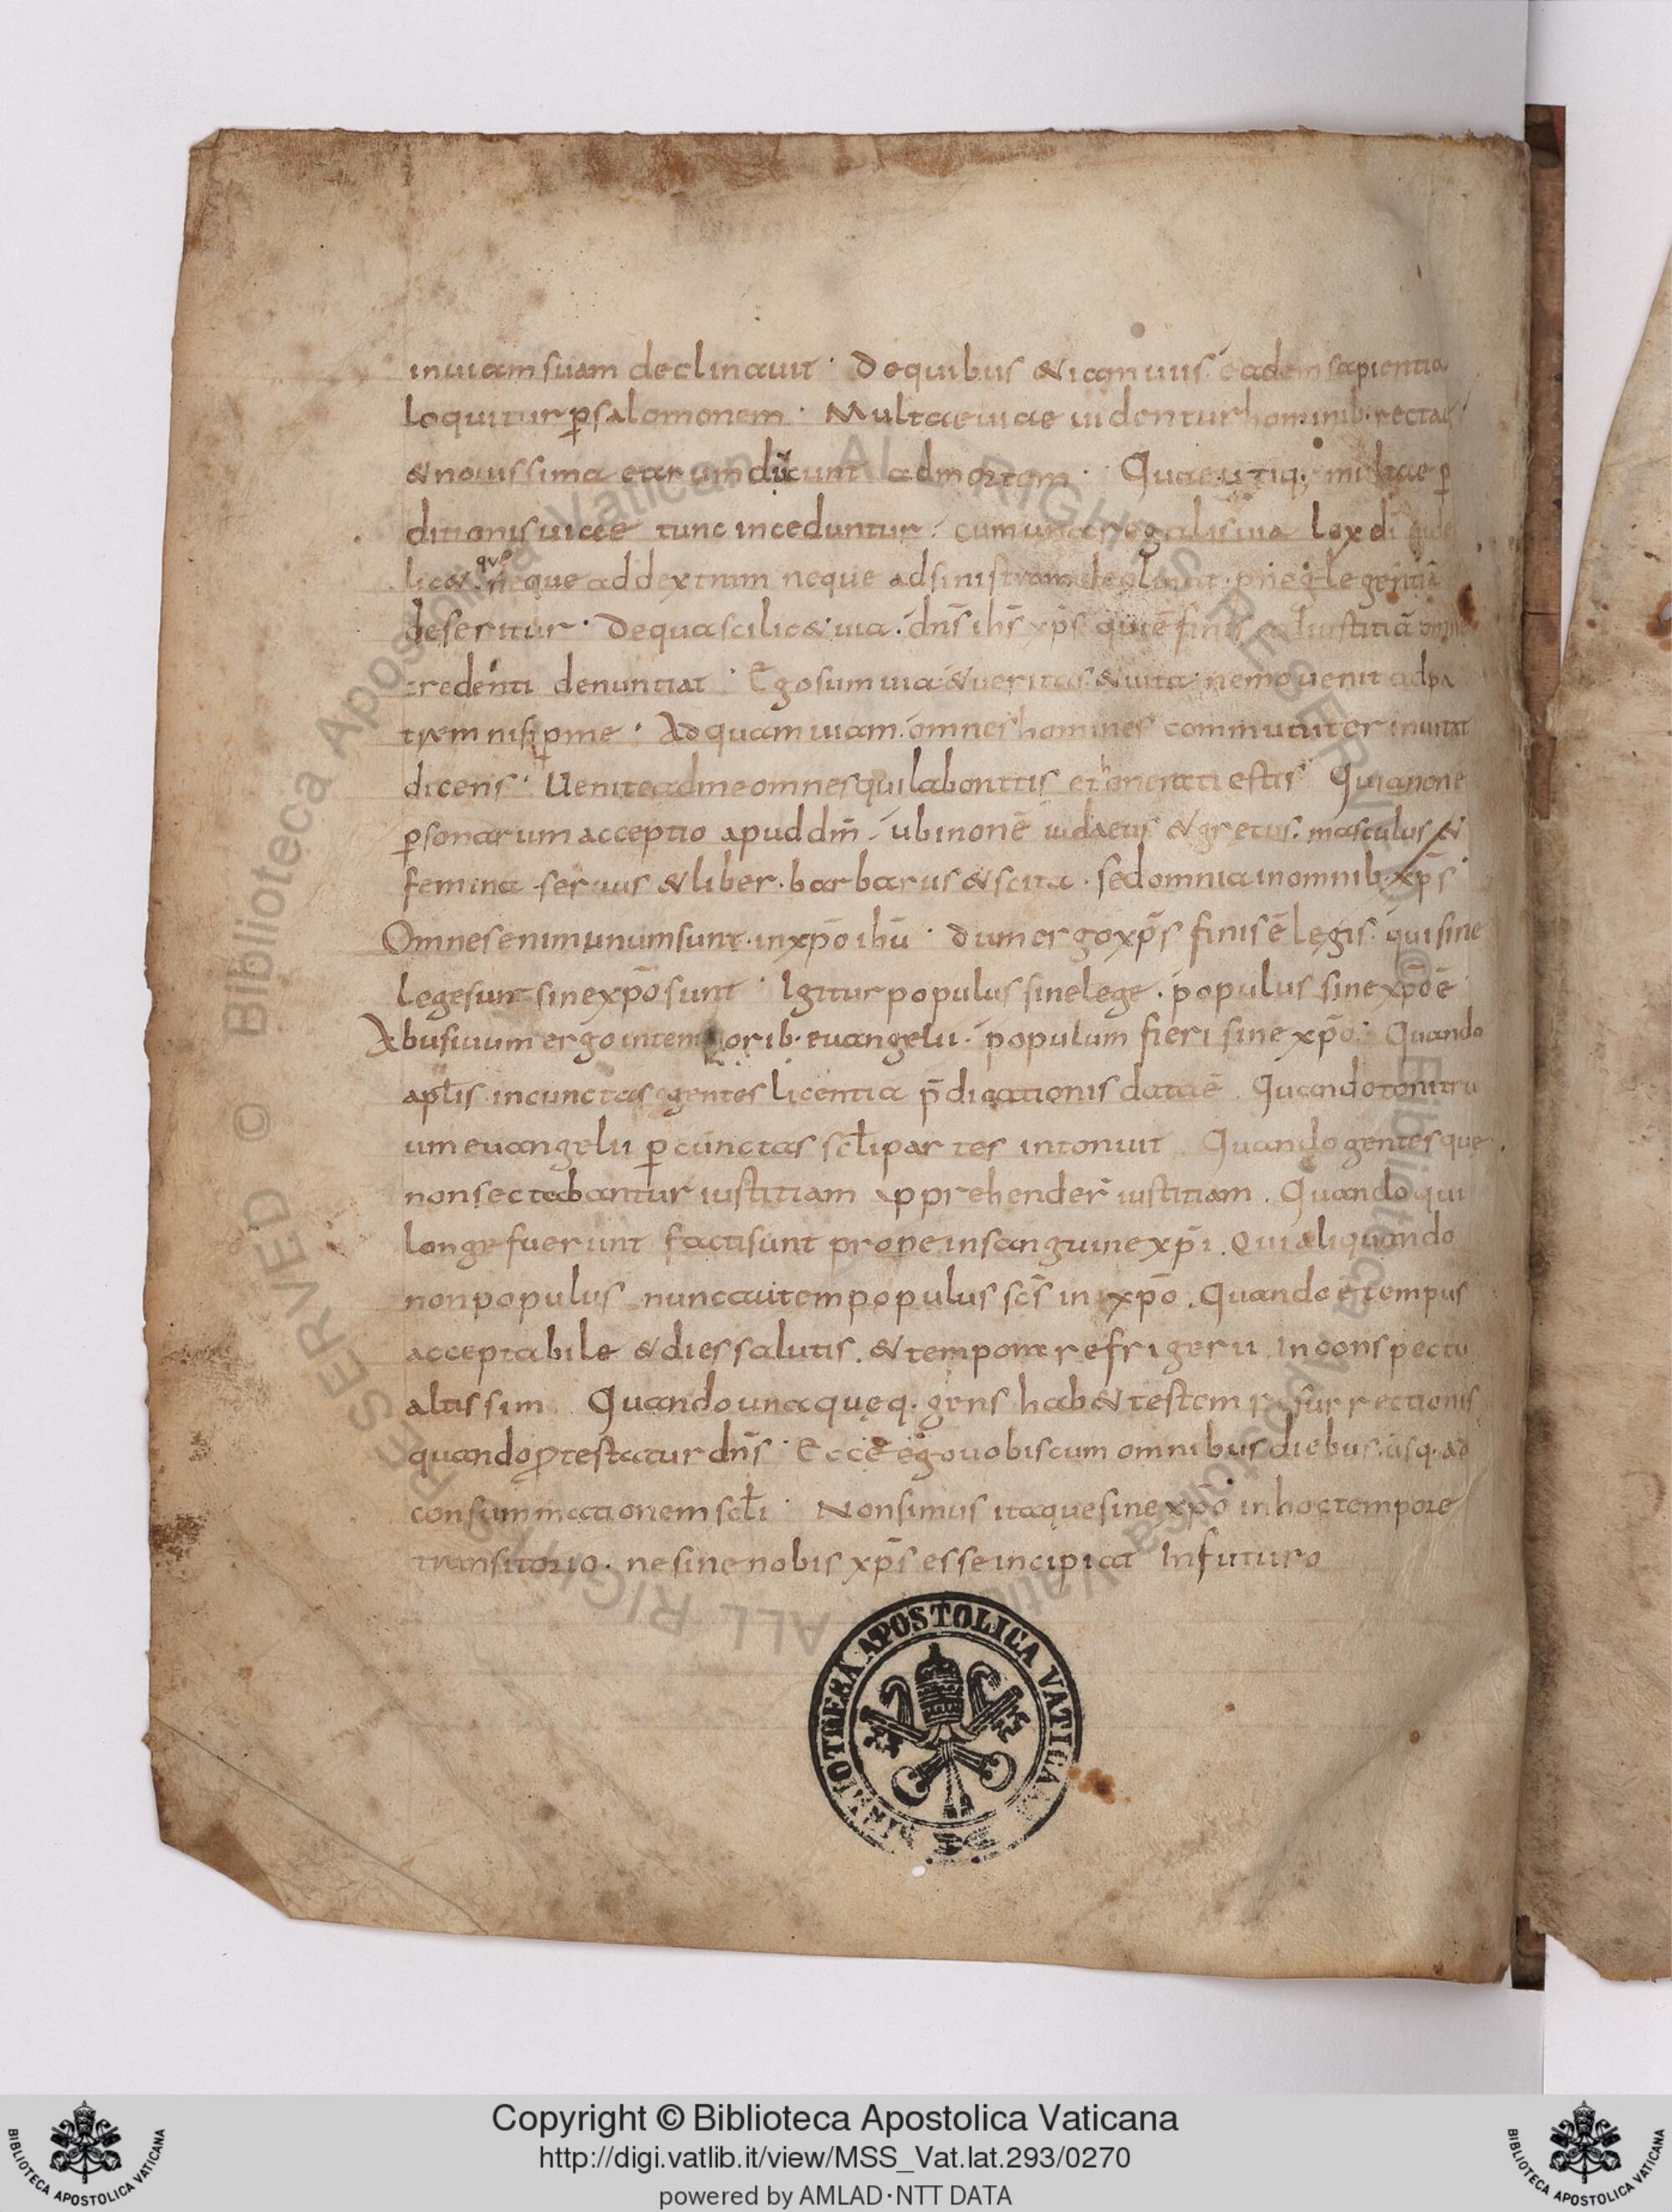 inuiamsuam declinauit · Dequibus & iamuiis eadem sapientia
loquitur p̱salomonem · Multaeuiae uidenturhominib·rectae
&nouissima earumducunt admortem · Quaeutiq; multae p̱
ditionisuiae tunc inceduntur · cumunaregalisuia lex di
lic& quę neque addextram neque adsinistram declinat· pneglegentiā
deseritur · Dequascilic& uia · dn̄s ih̄s xp̄s quiē finis adiustitiā omni
credenti denuntiat · Egosum uia &ueritas &uita nemouenit adpa
trem nisi p̱me · Adquam uiam omnes homines communiter inuitat
dicens · Ueniteadmeomnesquilaboratis et onerati estis Quianonē
p̱sonarumacceptio apuddm̄ · ubinonē iudaeus &grecus· masculus &
femina ·seruus &liber· barbarus &scita · sedomniainomnib· xp̄s
Omnesenimunumsunt·inxp̄o ihū · dumergoxp̄s finisē legis· quisine
legesunt sinexp̄osunt · Igiturpopulus sinelege · populus sinexp̄oē
Abusiuum ergointemporib· euangelii · populum fieri sine xp̄o· Quando
apl̄is incunctas gentes licentia p̄dicationis dataē · Quandotonitru
umeuangelii p̱cunctas scl̄ipartes intonuit Quandogentesque
nonsectabantur iustitiam apprehender̄ iustitiam · Quandoqui
longefuerunt factisunt propeinsanguinexp̄i · Quialiquando
nonpopulus nuncautempopulus sc̄s in xp̄o · Quandoē tempus
acceptabile &diessalutis · &tempora refrigerii inconspectu
altissimi Quandounaquęq· gens hab& testem resurrectionis
quandop̱testaturdn̄s · Ecce egouobiscum omnibusdiebus· usq· ad
consummationemscl̄i · Nonsimus itaquesinexp̄o inhoctempore
transitorio · nesinenobis xp̄s esseincipiat Infuturo
BIBLIOTHECA APOSTOLICA VATICANA
© Biblioteca Apostolica Vaticana ALL RIGHTS RESERVED
Copyright © Biblioteca Apostolica Vaticana
http://digi.vatlib.it/view/MSS_Vat.lat.293/0270
powered by AMLAD·NTT DATA
BIBLIOTECA APOSTOLICA VATICANA
BIBLIOTECA APOSTOLICA VATICANA